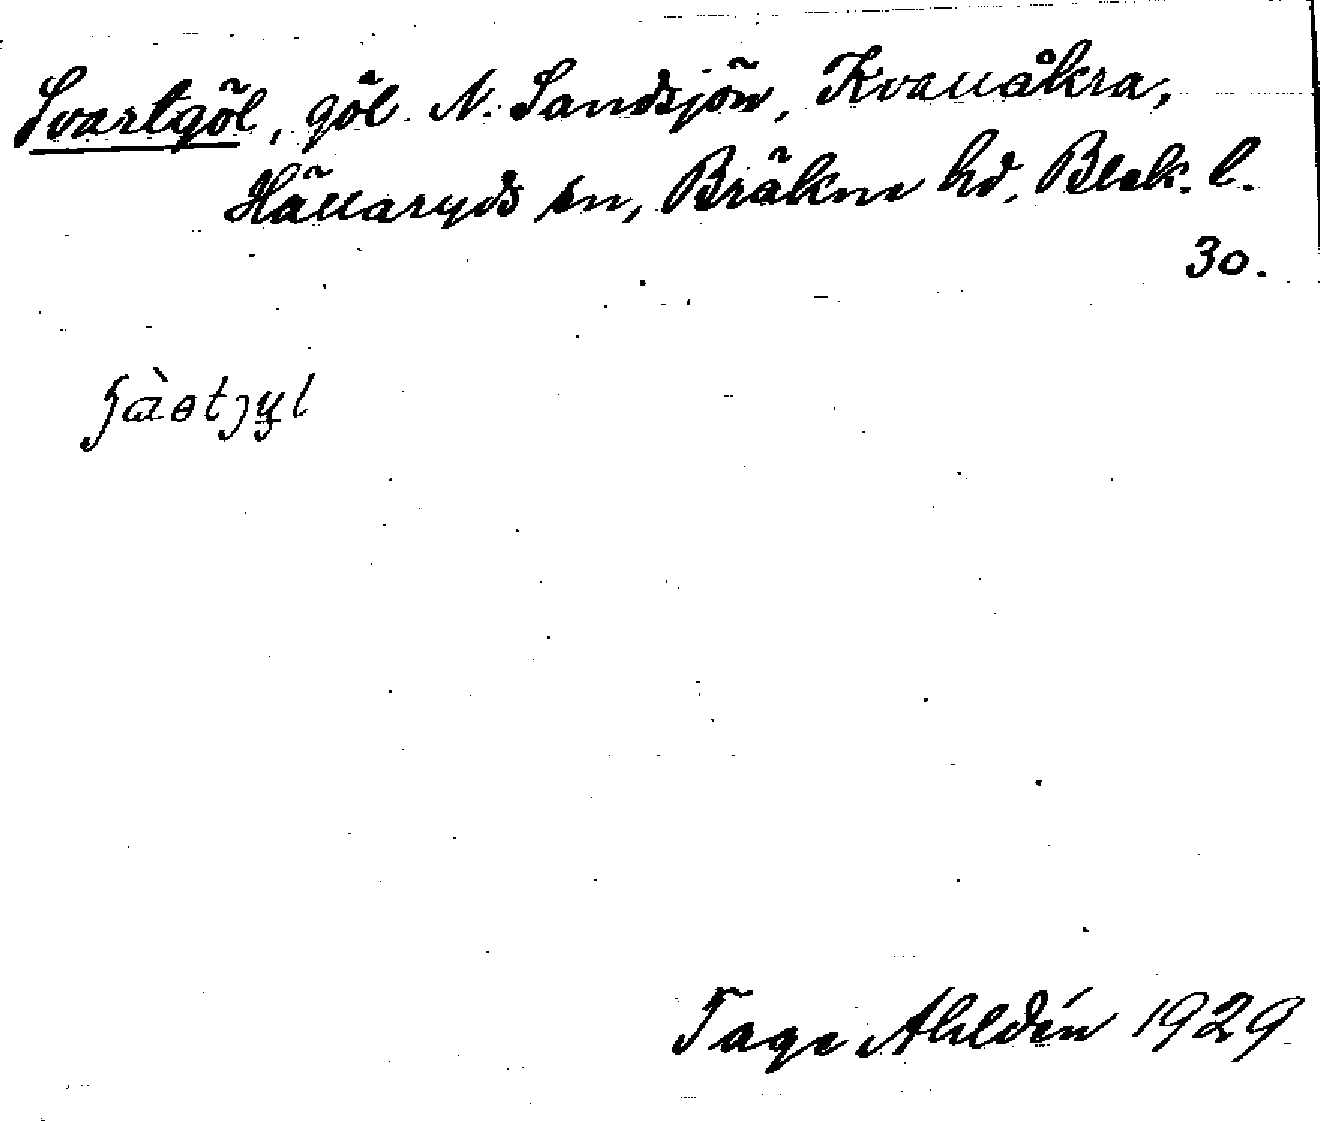 Svartgöl, göl N. Sandsjön, Kvallåkra,
Hällaryds sn, Bräkne hd, Blek. l.
30.
Tage Ahldén 1929